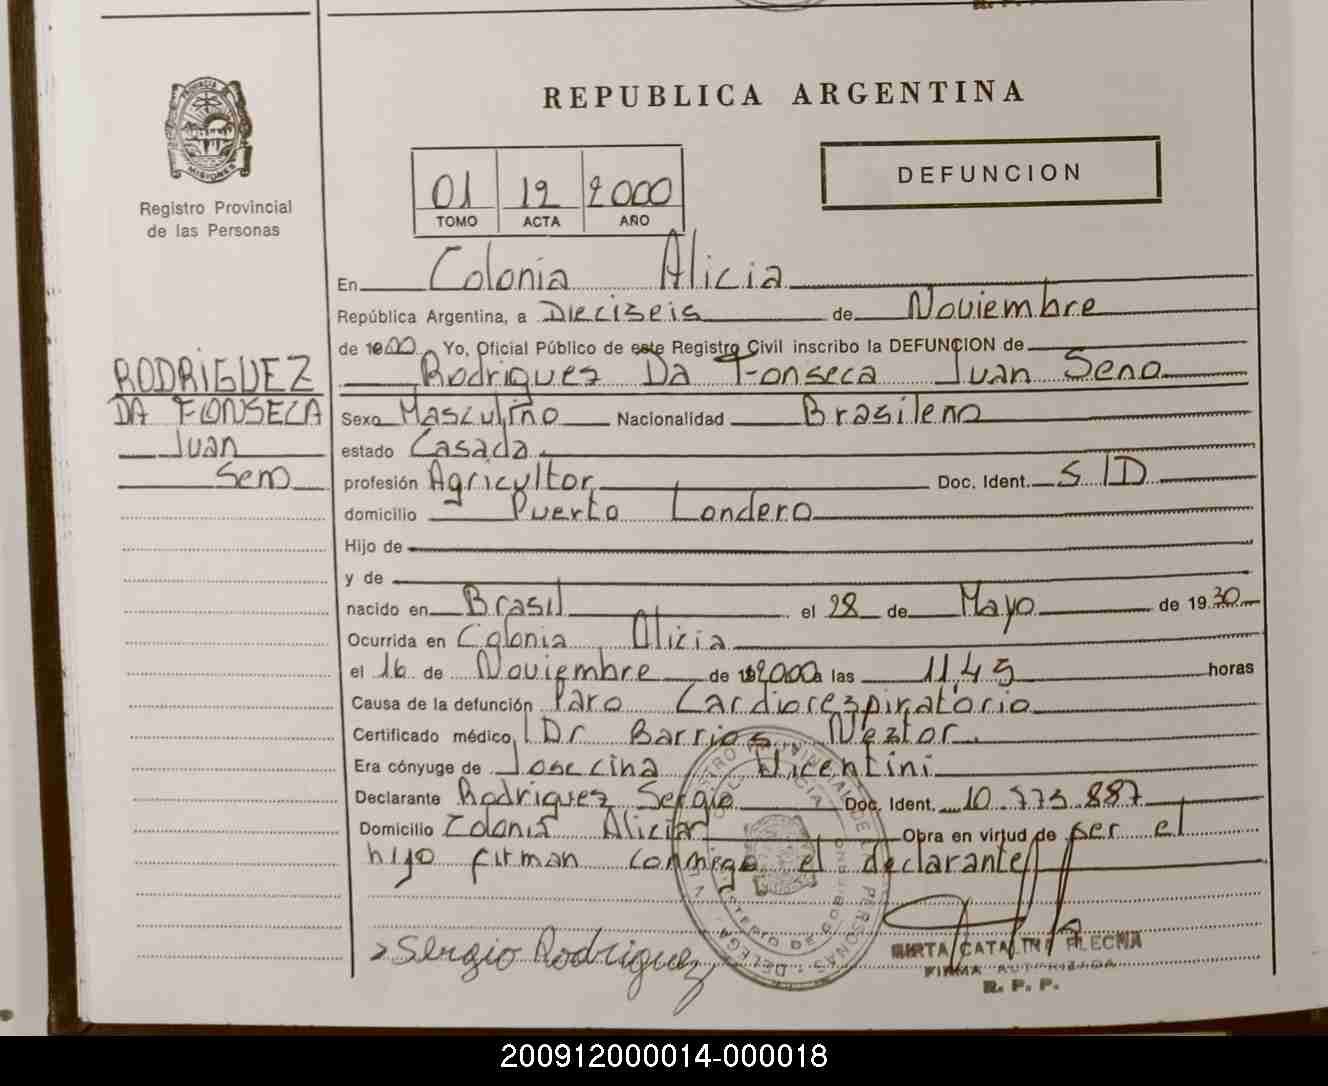 REPUBLICA ARGENTINA
PROVINCIA DE
MISIONES
Registro Provincial
de las Personas
01 12 2000
TOMO ACTA AÑO
DEFUNCION
En Colonia Alicia
República Argentina, a Dieciseis de Noviembre
de Yo, Oficial Público de este Registro Civil inscribo la DEFUNCION de
Rodriguez Da Fonseca Juan Seno
RODRIGUEZ
DA FONSECA
Juan
Seno
Sexo Masculino Nacionalidad Brasileno
estado Casada
profesión Agricultor Doc. Ident. S/D
domicilio Puerto Londero
Hijo de
y de
nacido en Brasil el 28 de Mayo de 1930
Ocurrida en Colonia Alicia
el 16 de Noviembre de 2000 a las 11,45 horas
Causa de la defunción Paro Cardiorespiratorio
Certificado médico Dr Barrios Nestor.
Era cónyuge de Joseccina Vicentini
Declarante Rodriguez Sergio Doc. Ident. 10.773.887
Domicilio Colonia Alicia Obra en virtud de ser el
hijo firman conmigo el declarante
Sergio Rodriguez
MIRTA CATALINA FLECHA
FIRMA AUTORIZADA
R. P. P.
200912000014-000018